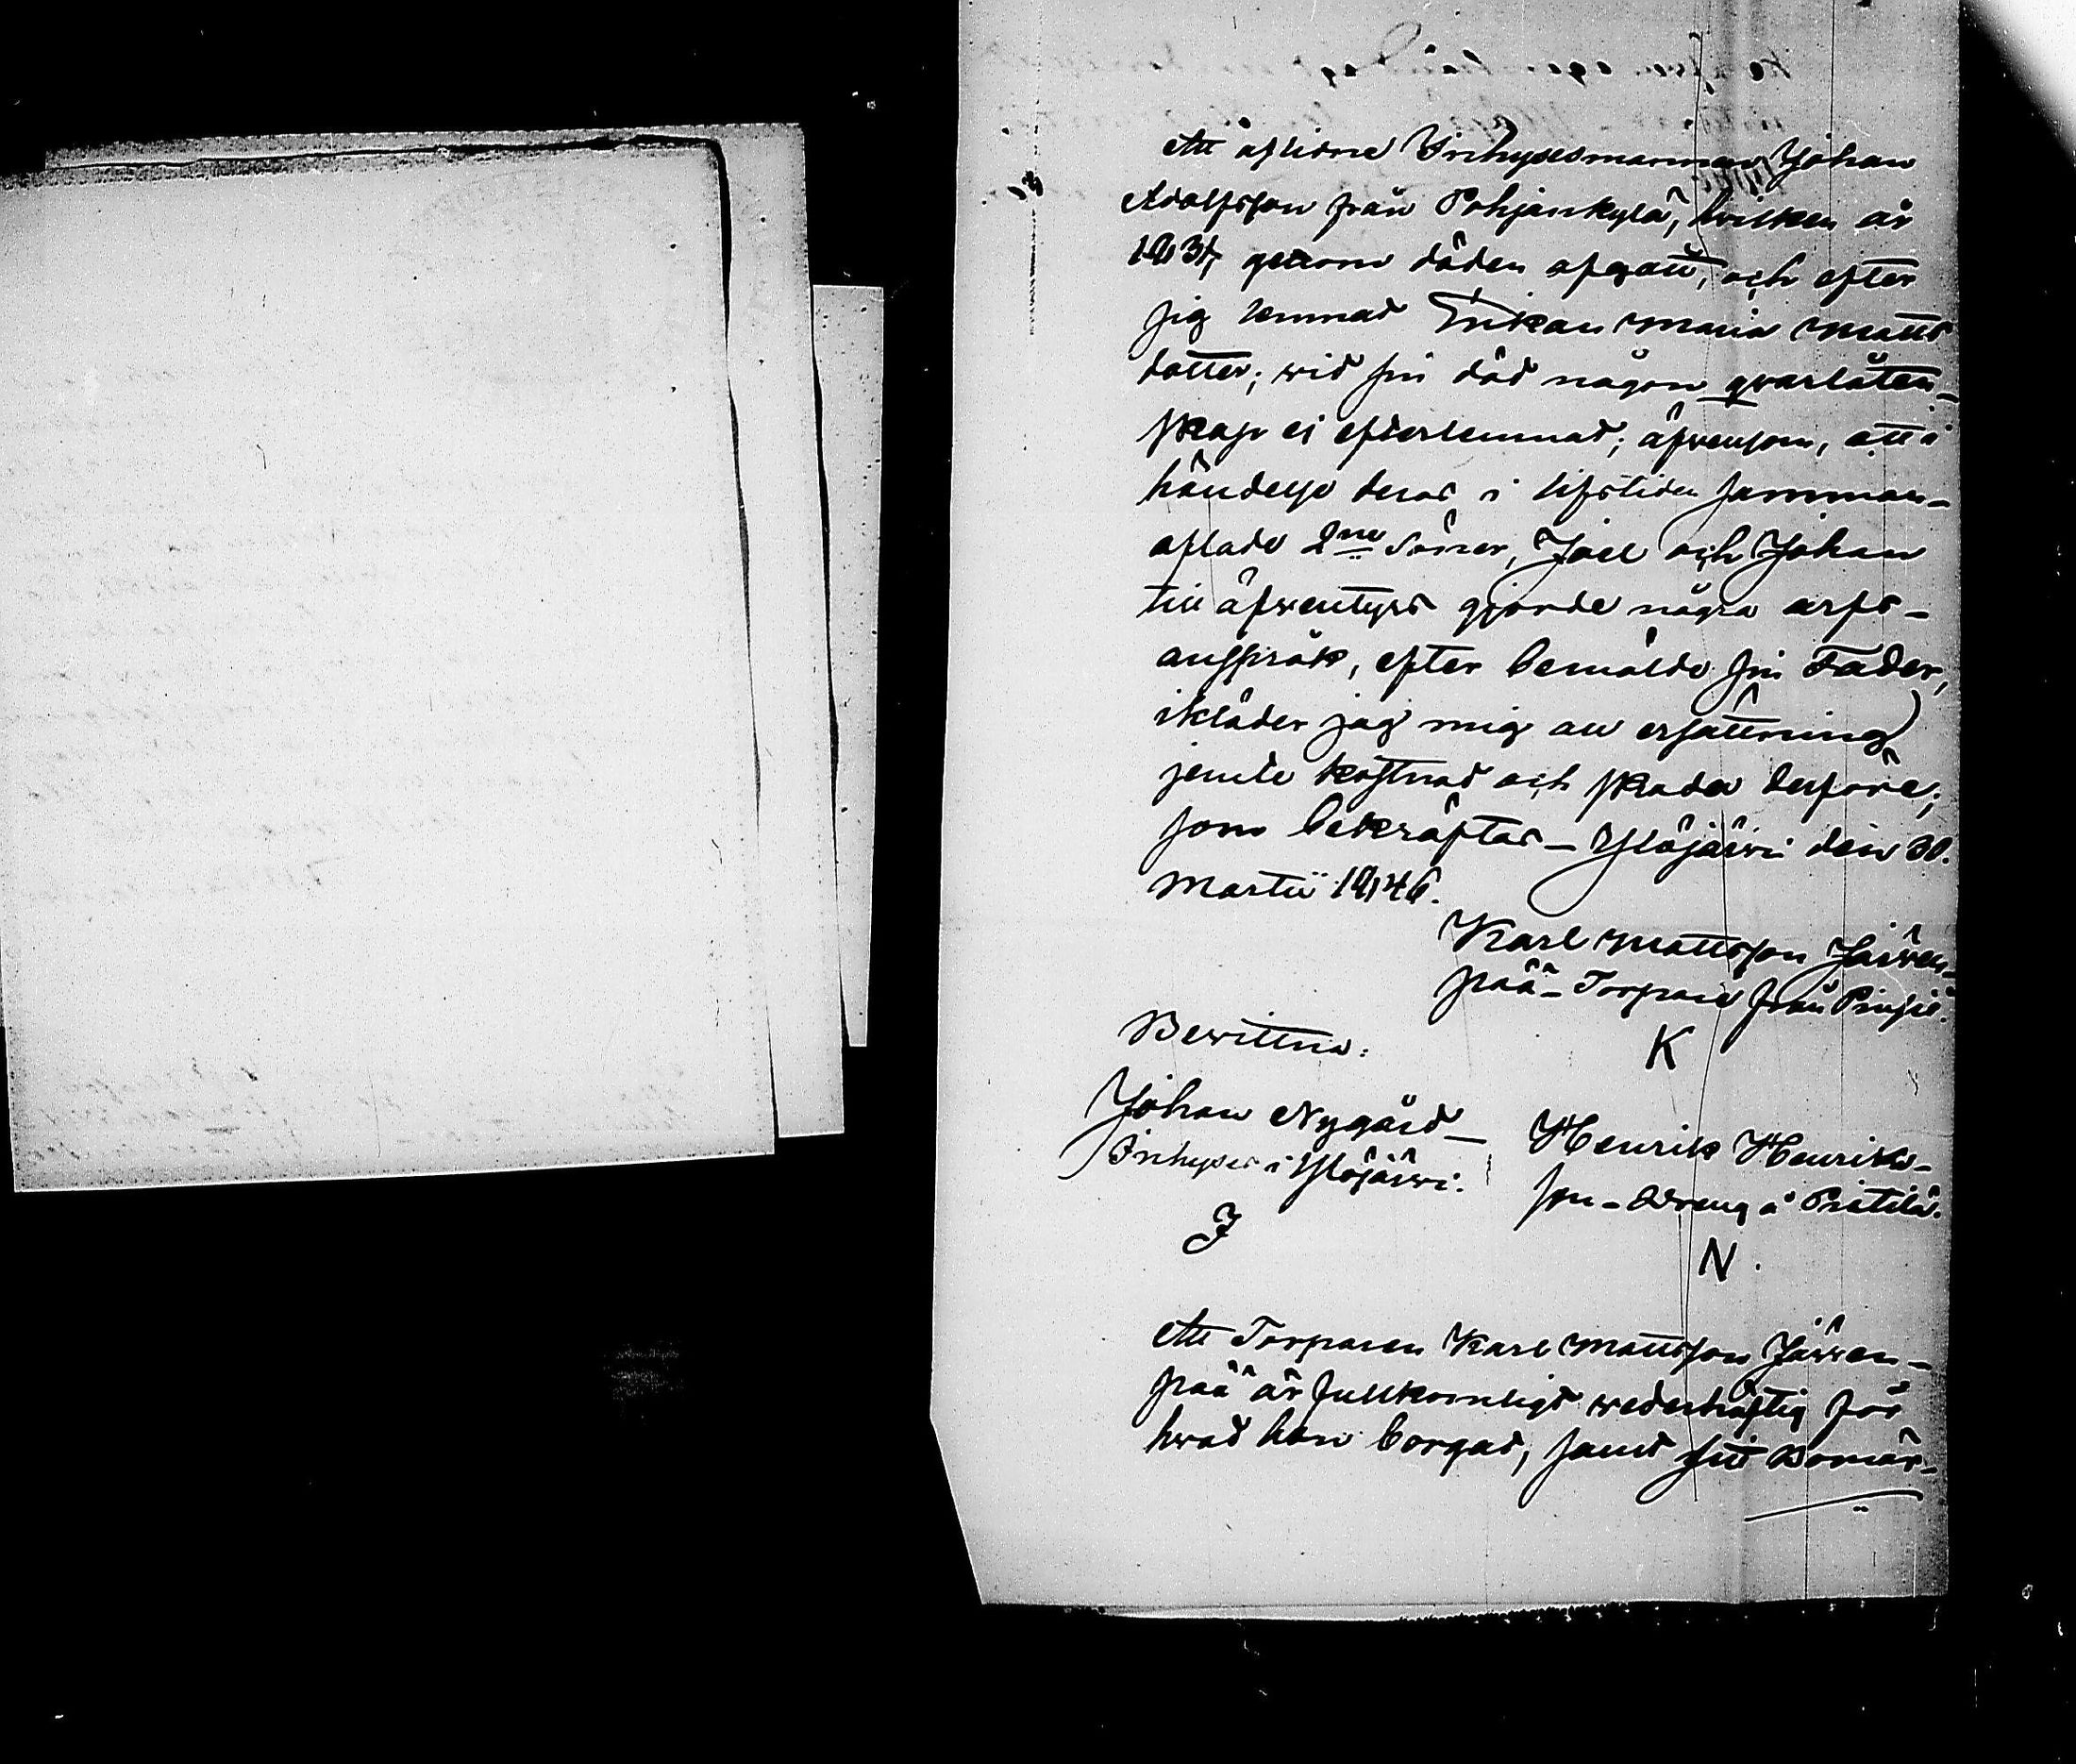 Att aflidne Inhysesmannen Johan
Adolfsson från Pohjankylä, hvilken år
1834 genom döden afgått, och efter
sig lemnat Enkan Maria Matts
dotter; wid sin död någon qvarlåten-
skap ei efterlemnat; äfvensom, att i
händelse deras i lifstiden samman-
aflade 2ne Söner, Joel och Johan
till äfventyrs gjorde några arfs-
anspråk, efter bemälde sin Fader,
ikläder jag mig all ersättning
jemte kostnad och skada derföre;
som bekräftas – Ylöjärvi den 30.
Martii 1846.
Karl Mattsson Järven-
pää – Torpare från
K
Bevittna:
Johan Nygård –
Inhyses i Ylöjärvi.
J
Henrik Henriks-
son – Dräng å Pietilä.
N.
Att Torparen Karl Mattsson Järven-
pää är fullkomligt wederhäftig för
hvad han borgat, samt sitt Bomär-